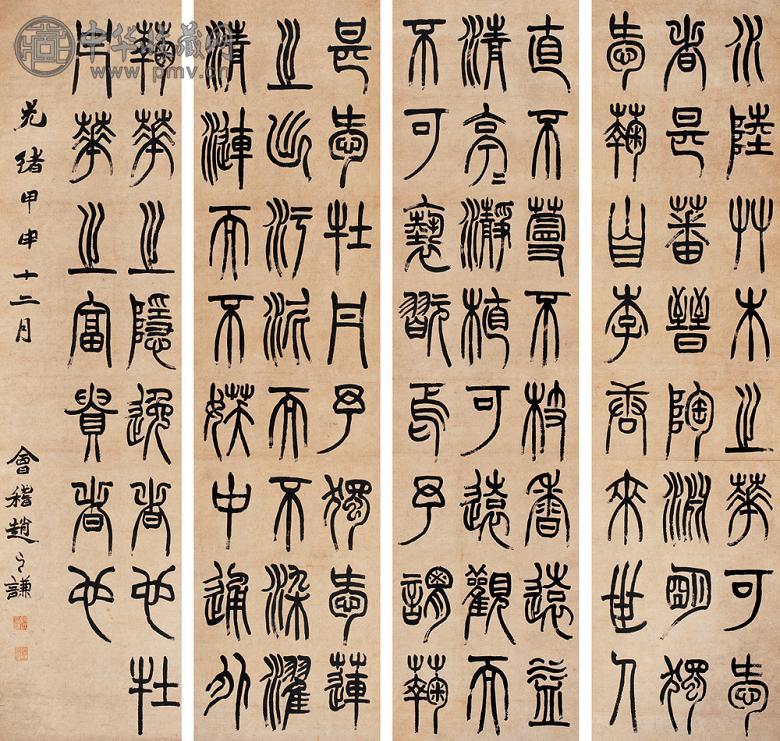 水陸艸木之華可愛
者甚蕃晉陶淵明獨
愛蘜自李唐來世人
直不蔓不枝香遠益
清亭〻瀞植可遠觀而
不可褻翫焉予謂蘜
甚愛牡丹予獨愛蓮
之出汙泥而不染濯
清漣而不妖中通外
蘜華之隱逸者也牡
丹華之富貴者也
光緒甲申十二月 會稽趙之謙
中华收藏网
www.pmv.cn